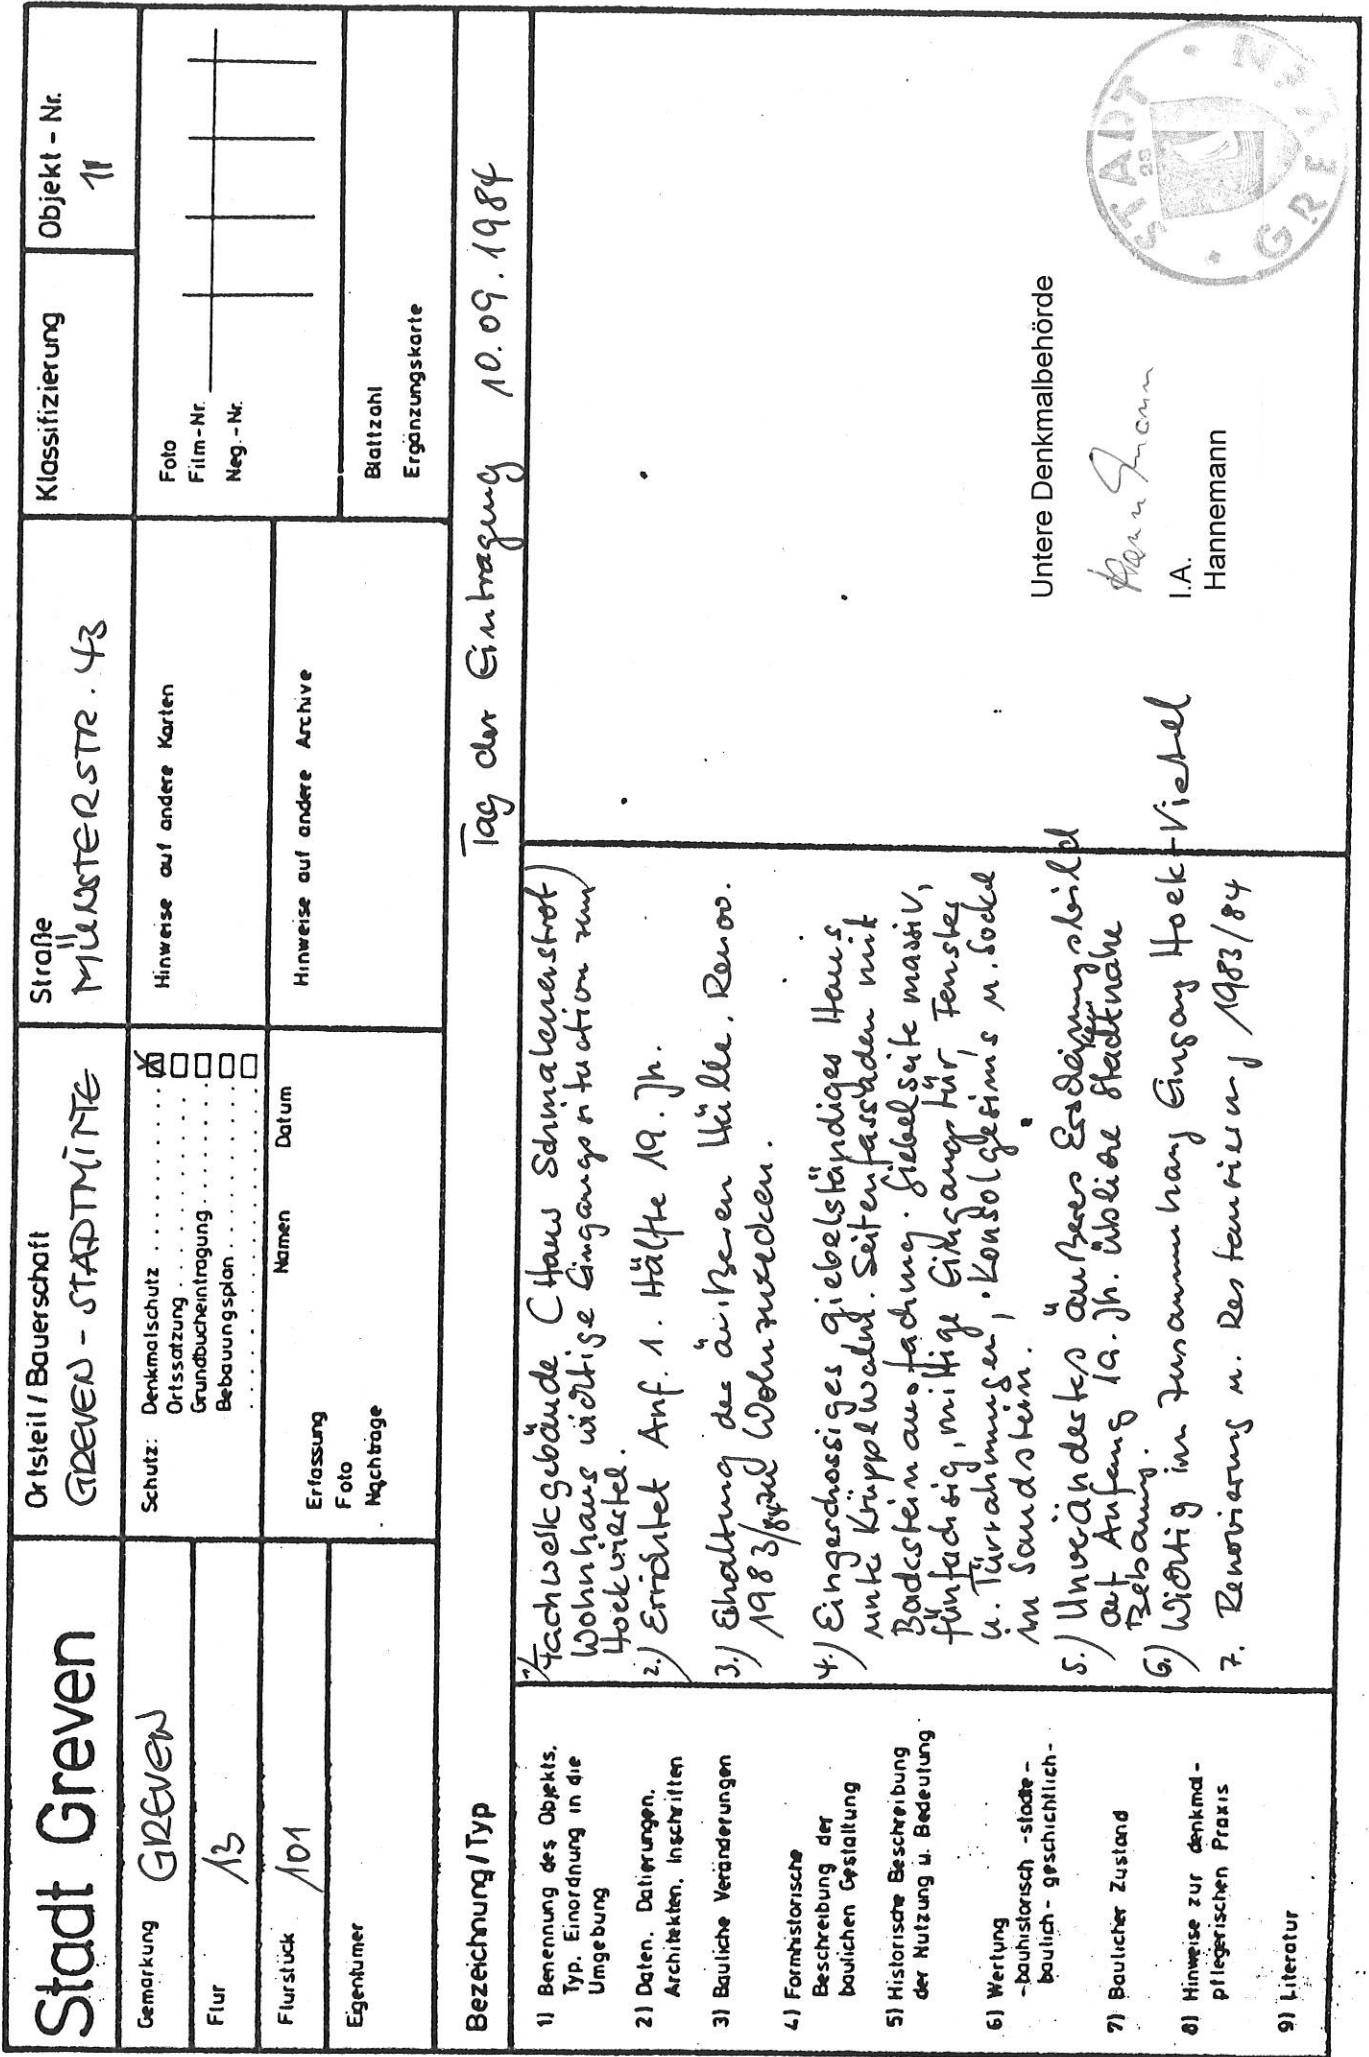 Stadt Greven
Ortsteil / Bauerschaft
GREVEN - STADTMITTE
Straße
MÜNSTERSTR. 43
Klassifizierung
Objekt - Nr.
11
Gemarkung GREVEN
Flur 13
Flurstück 101
Eigentümer
Schutz: Denkmalschutz
Ortssatzung
Grundbucheintragung
Bebauungsplan
Namen Datum
Erfassung
Foto
Nachträge
Hinweise auf andere Karten
Hinweise auf andere Archive
Foto
Film-Nr.
Neg.-Nr.
Blattzahl
Ergänzungskarte
Bezeichnung / Typ
Tag der Eintragung 10.09.1984
1) Benennung des Objekts.
Typ. Einordnung in die
Umgebung
2) Daten. Datierungen.
Architekten. Inschriften
3) Bauliche Veränderungen
4) Formhistorische
Beschreibung der
baulichen Gestaltung
5) Historische Beschreibung
der Nutzung u. Bedeutung
6) Wertung
-bauhistorisch - städte-
baulich - geschichtlich-
7) Baulicher Zustand
8) Hinweise zur denkmal-
pflegerischen Praxis
9) Literatur
1./ Fachwerkgebäude (Haus Schmalenerstrot)
Wohnhaus wichtige Eingangssituation zum
Hoekviertel.
2.) Errichtet Anf. 1. Hälfte 19. Jh.
3.) Erhaltung der äußeren Hülle. Renov.
1983/84 zu Wohnzwecken.
4.) Eingeschossiges giebelständiges Haus
unter Krüppelwalm. Seitenfassaden mit
Backsteinausfachung. Giebelseite massiv,
fünfachsig, mittige Eingangstür, Fenster
u. Türrahmungen, Konsolgesims u. Sockel
in Sandstein.
5.) Unverändertes äußeres Erscheinungsbild
der Anfang 19. Jh. übliche Stadtnahe
Bebauung.
6.) Wichtig im Zusammenhang Eingang Hoek-Viertel
7. Renovierung u. Restaurierung 1983/84
Untere Denkmalbehörde
I.A.
Hannemann
STADT GREVEN
23